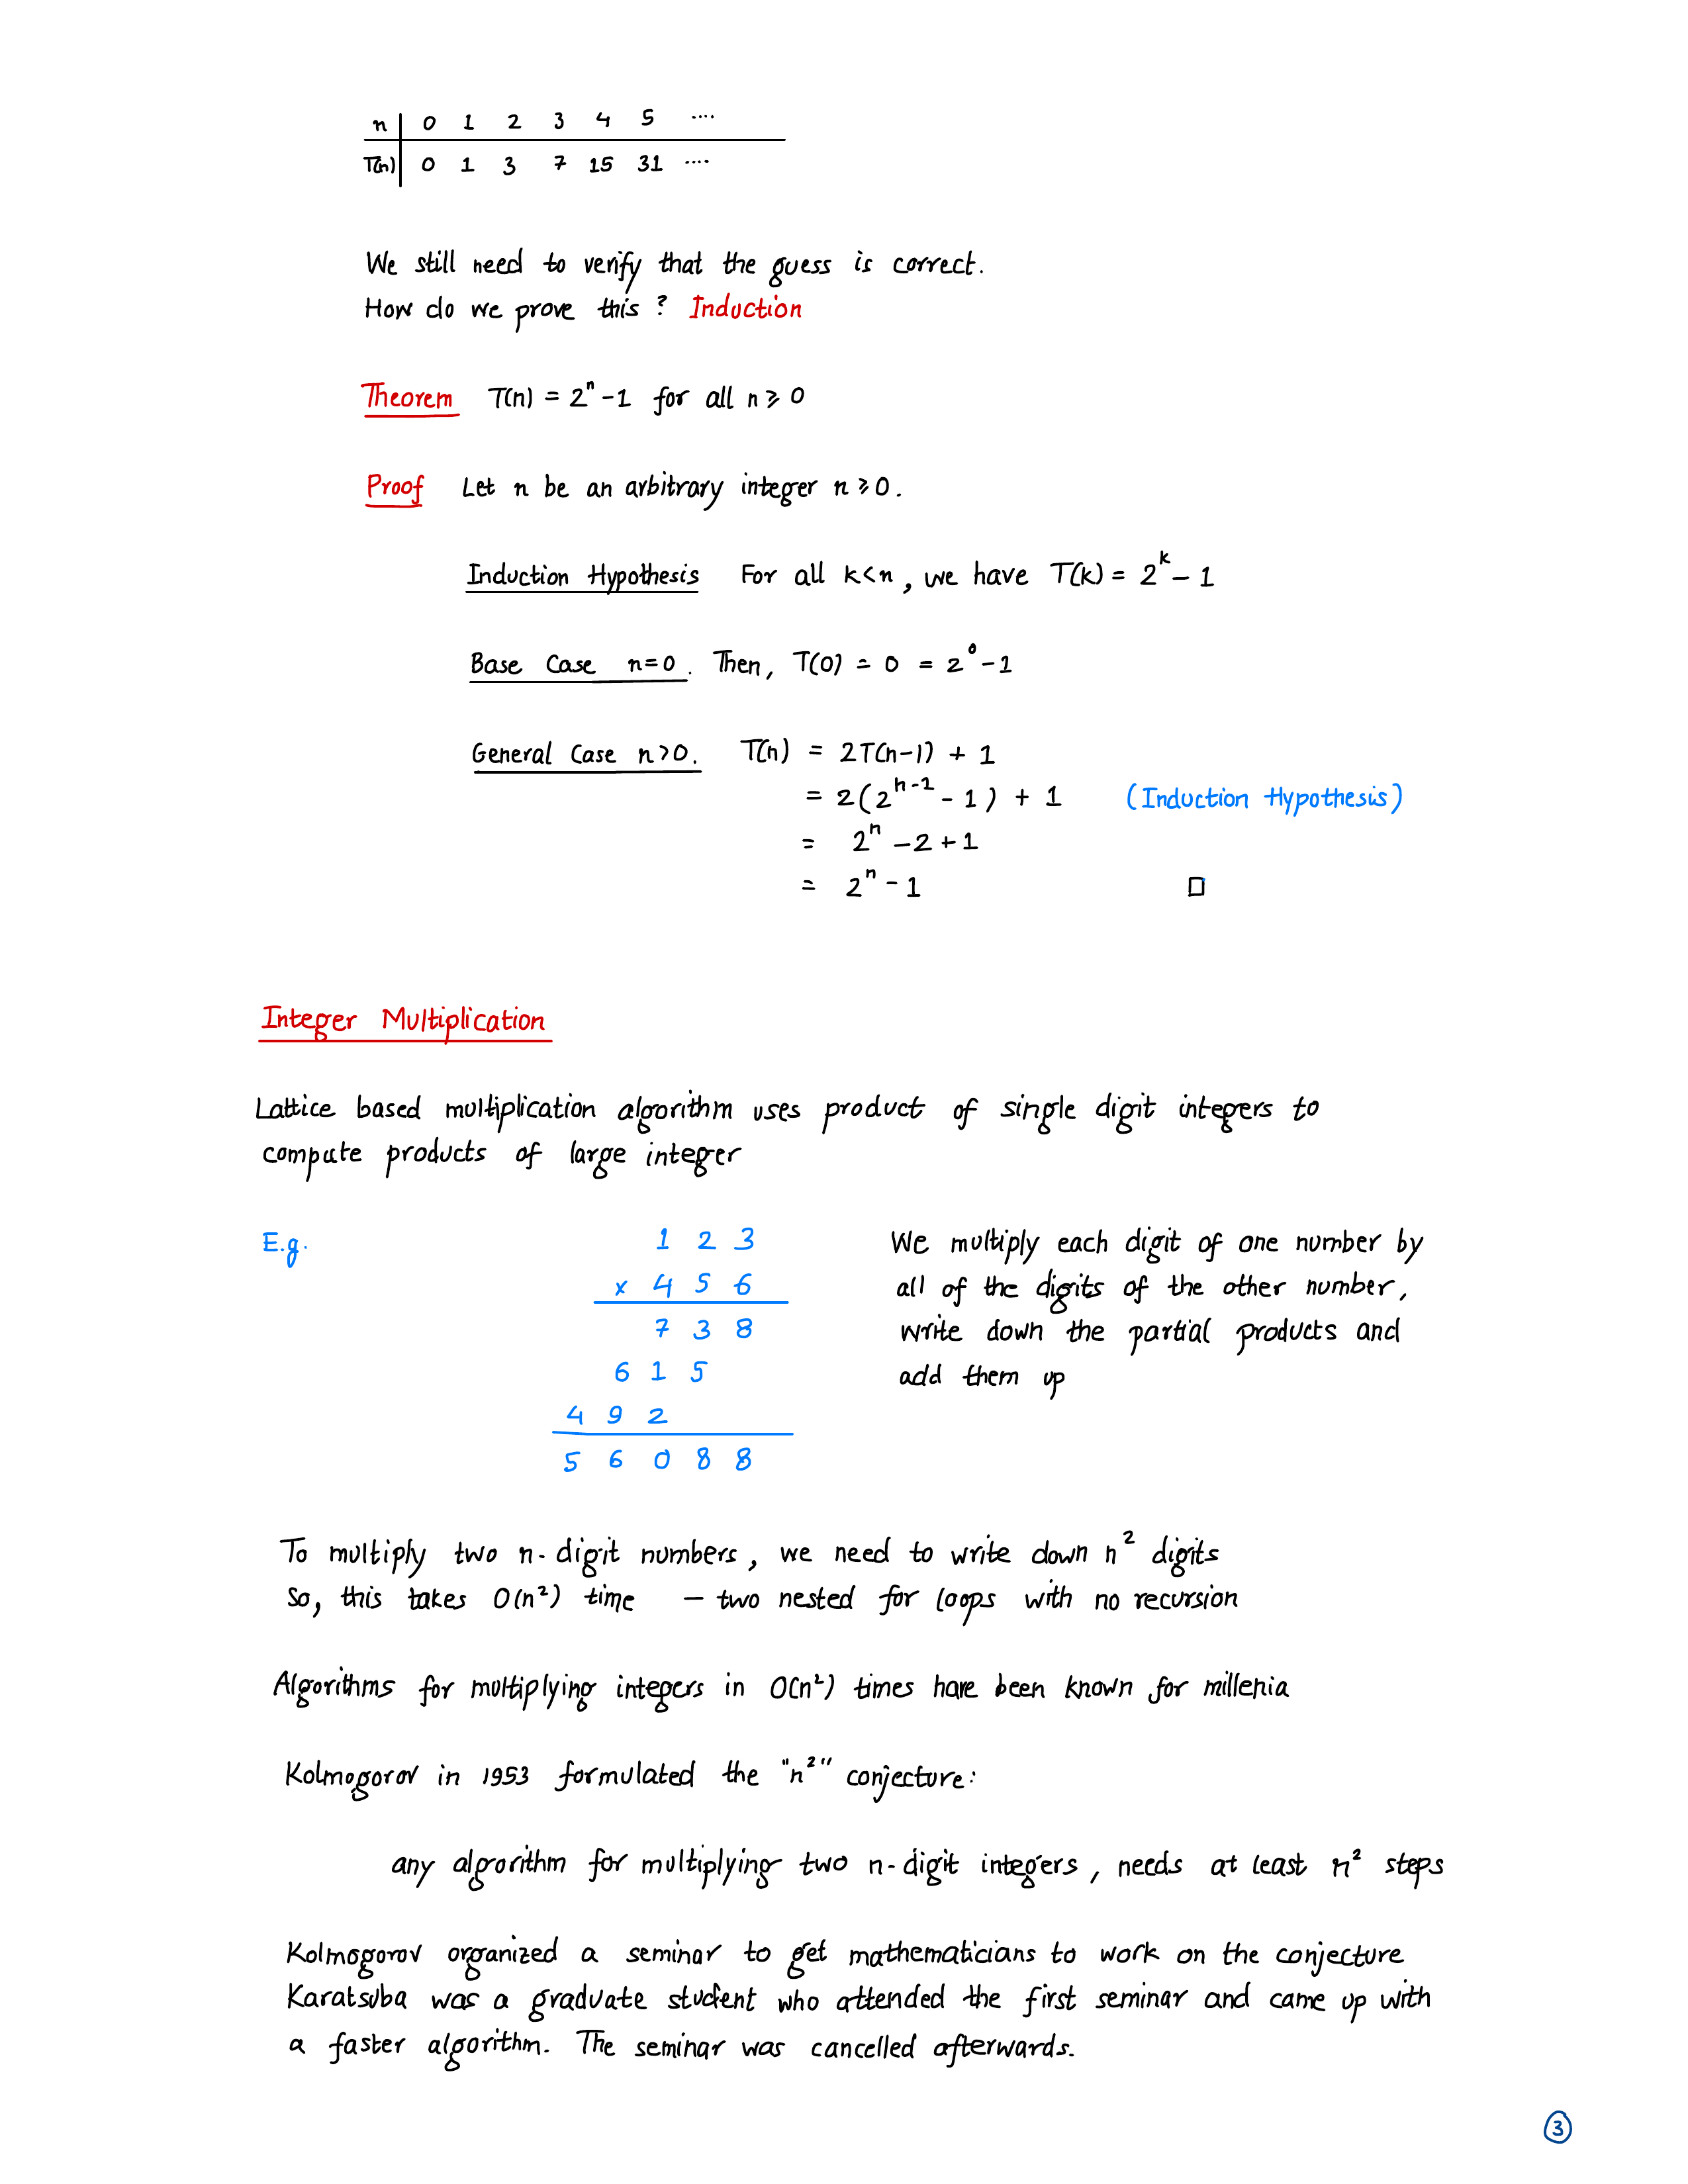 n 0 1 2 3 4 5 ....
T(n) 0 1 3 7 15 31 ....
We still need to verify that the guess is correct.
How do we prove this ? Induction
Theorem T(n) = 2^n - 1 for all n ≥ 0
Proof Let n be an arbitrary integer n ≥ 0.
Induction Hypothesis For all k < n, we have T(k) = 2^k - 1
Base Case n=0. Then, T(0) = 0 = 2^0 - 1
General Case n>0. T(n) = 2T(n-1) + 1
= 2(2^{n-2} - 1) + 1 (Induction Hypothesis)
= 2^n - 2 + 1
= 2^n - 1 □
Integer Multiplication
Lattice based multiplication algorithm uses product of single digit integers to
compute products of large integer
E.g. 1 2 3 We multiply each digit of one number by
x 4 5 6 all of the digits of the other number,
7 3 8 write down the partial products and
6 1 5 add them up
4 9 2
5 6 0 8 8
To multiply two n-digit numbers, we need to write down n² digits
So, this takes O(n²) time – two nested for loops with no recursion
Algorithms for multiplying integers in O(n²) times have been known for millenia
Kolmogorov in 1953 formulated the "n²" conjecture:
any algorithm for multiplying two n-digit integers, needs at least n² steps
Kolmogorov organized a seminar to get mathematicians to work on the conjecture
Karatsuba was a graduate student who attended the first seminar and came up with
a faster algorithm. The seminar was cancelled afterwards.
3